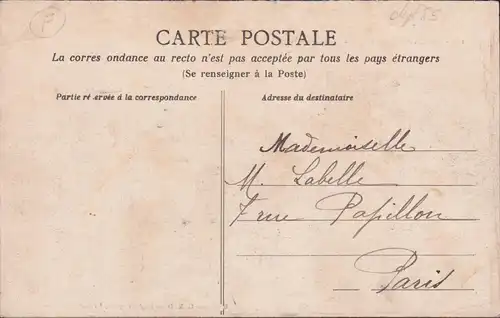 CARTE POSTALE
La corres ondance au recto n'est pas acceptée par tous les pays étrangers
(Se renseigner à la Poste)
Partie ré ervée à la correspondance
Adresse du destinataire
Mademoiselle
M. Labelle
7 rue Papillon
Paris